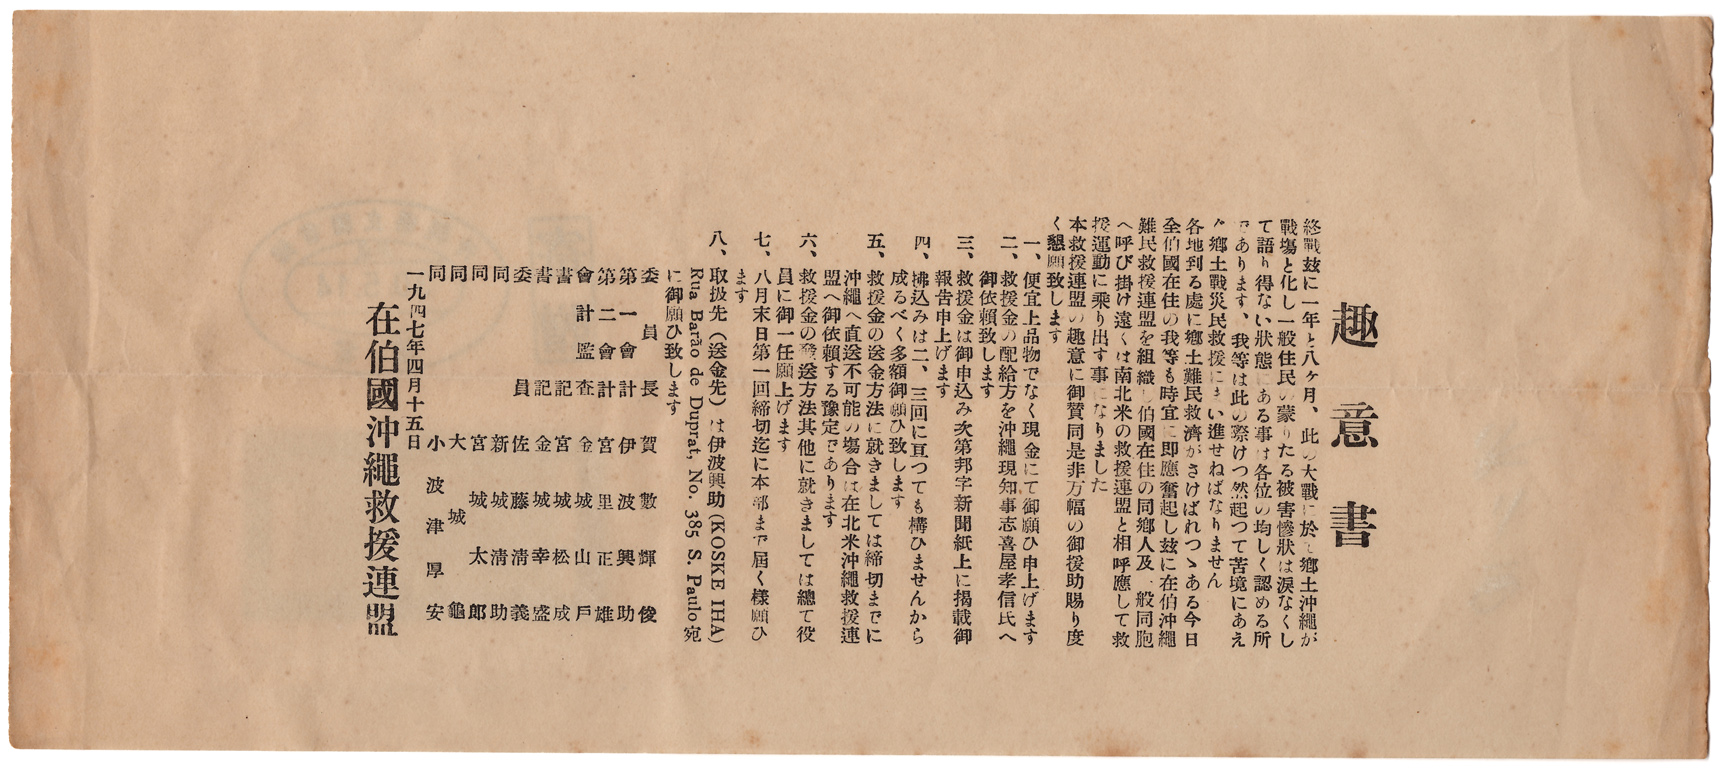 趣意書
終戰玆に一年と八ヶ月、此の大戰に於て鄕土沖繩が
戰塲と化し一般住民の蒙りたる被害慘狀は淚なくし
て語り得ない狀態にある事は各位の均しく認める所
であります、我等は此の際けつ然起つて苦境にあえ
ぐ鄕土戰災民救援にまい進せねばなりません
各地到る處に鄕土難民救濟がさけばれつゝある今日
全伯國在住の我等も時宜に即應奮起し玆に在伯沖繩
難民救援連盟を組織し伯國在住の同鄕人及一般同胞
へ呼び掛け遠くは南北米の救援連盟と相呼應して救
援運動に乘り出す事になりました
本救援連盟の趣意に御賛同是非万幅の御援助賜り度
く懇願致します
一、便宜上品物でなく現金にて御願ひ申上げます
二、救援金の配給方を沖繩現知事志喜屋孝信氏へ
御依賴致します
三、救援金は御申込み次第邦字新聞紙上に揭載御
報吿申上げます
四、拂込みは二、三回に亙つても構ひませんから
成るべく多額御願ひ致します
五、救援金の送金方法に就きましては締切までに
沖繩へ直送不可能の塲合は在北米沖繩救援連
盟へ御依賴する豫定であります
六、救援金の發送方法其他に就きましては總て役
員に御一任願上げます
七、八月末日第一回締切迄に本部まで屆く樣願ひ
ます
八、取扱先（送金先）は伊波興助(KOSKE IHA)
Rua Barão de Duprat, No. 385 S. Paulo 宛
に御願ひ致します
委員長 賀數輝俊
第一會計 伊波興助
第二會計 宮里正雄
會計監査 金城山戶
書記 宮城松成
書記 金城幸盛
委員 佐藤淸義
同 新城淸助
同 宮城太郎
同 大城龜
同 小波津厚安
一九四七年四月十五日
在伯國沖繩救援連盟